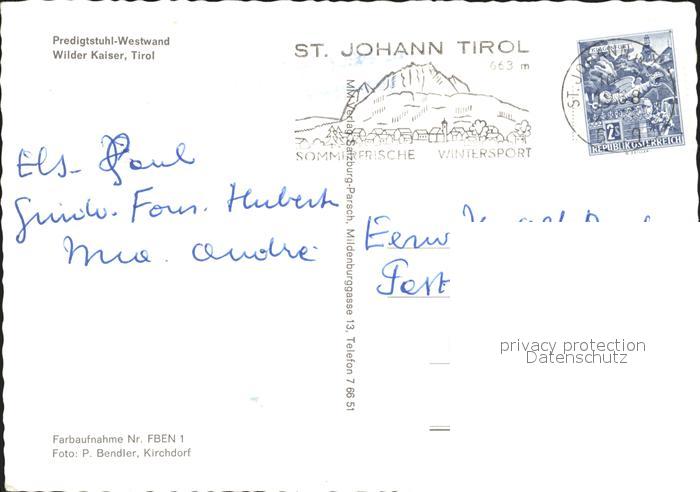 Predigtstuhl-Westwand
Wilder Kaiser, Tirol
ST. JOHANN TIROL
663 m
SOMMERFRISCHE WINTERSPORT
REPUBLIK ÖSTERREICH
Els - Paul
Guido. Fons. Hubert
Mia. André
Eerw
Past
Salzburg-Parsch, Mildenburggasse 13, Telefon 7 66 51
privacy protection
Datenschutz
Farbaufnahme Nr. FBEN 1
Foto: P. Bendler, Kirchdorf